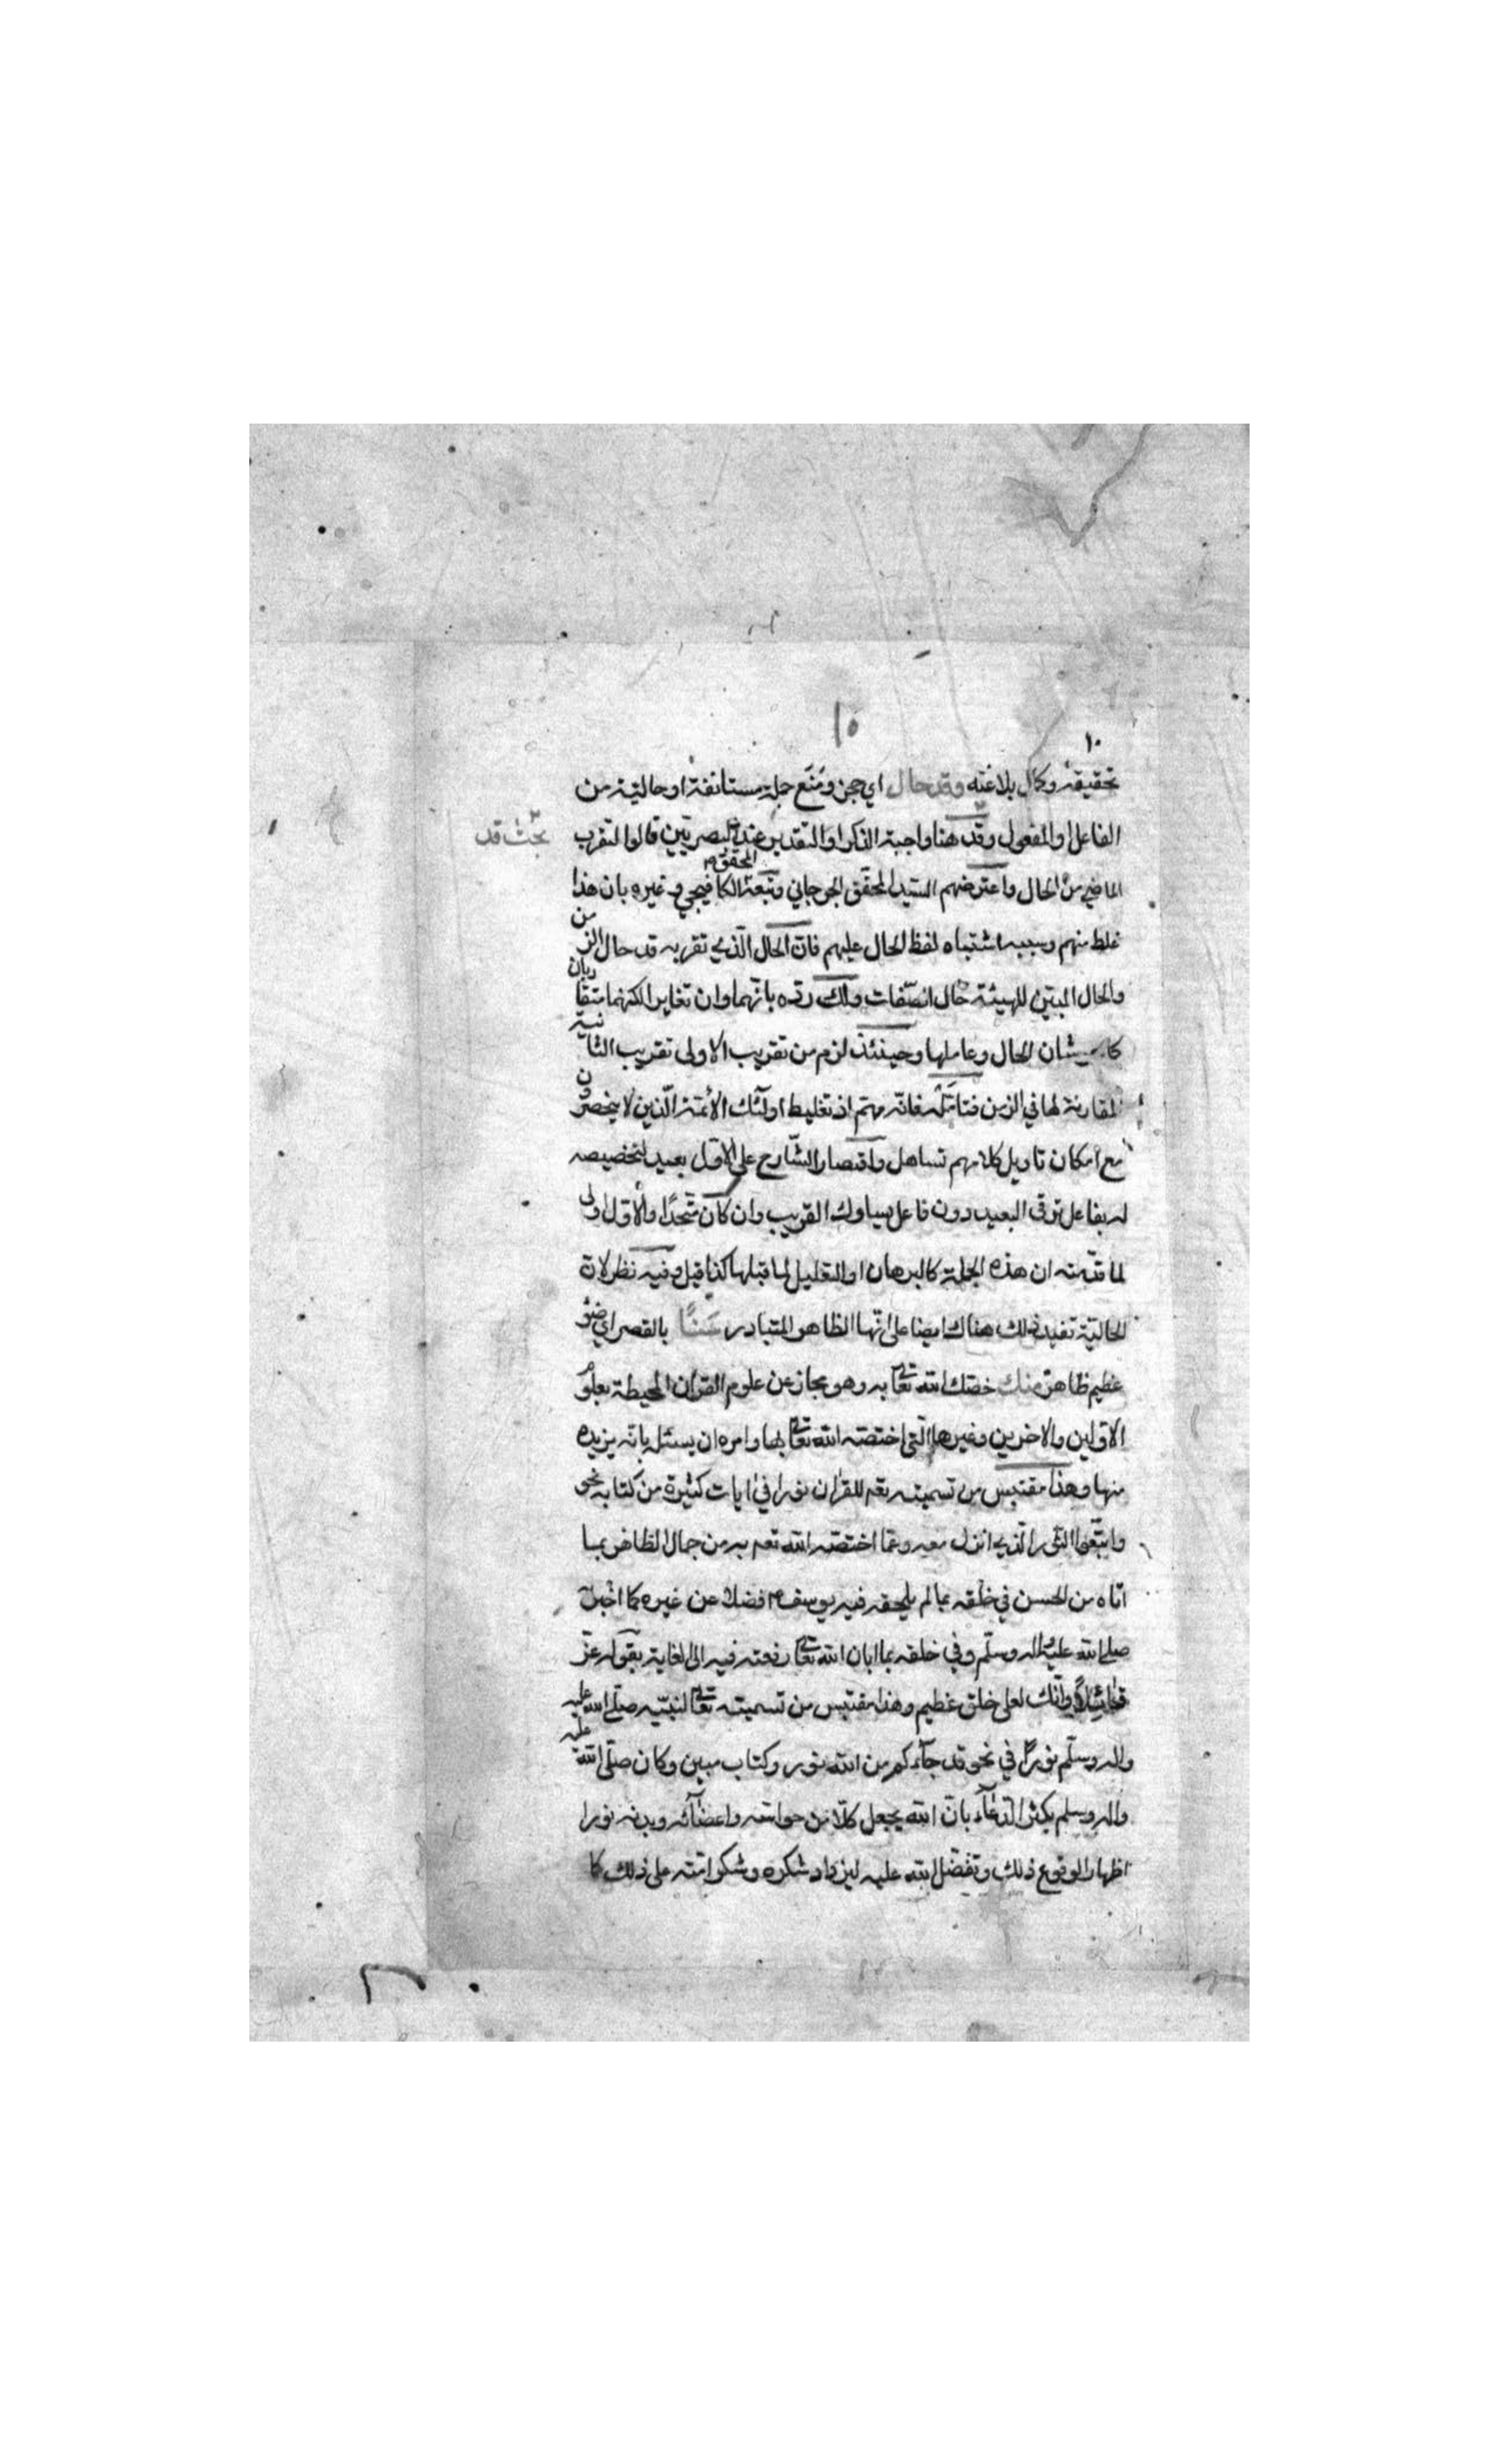 ١٠
١٥
تحقيقه وكمال بلاغته وقد حال اي حجز ومنع جملة مستانفة او حالية من
الفاعل او المفعول وقد هنا واجبة الذكر او التقدير عند البصريين قالوا لتقرب
بحث قد
الماضي من الحال واعترضهم السيد المحقق الجرجاني وتبعه المحقق الكافيجي وغيره بان هذا
غلط منهم وسببه اشتباه لفظ الحال عليهم فان الحال الذي تقربه قد حال الزمن
والحال المبين للهيئة حال الصفات ولك رده بانهما وان تغايرا لكنهما متقاربان
كما هو شان الحال وعاملها وحينئذ لزم من تقريب الاولى تقريب الثانية
المقارنة لها في الزمن فتامله فانه مهم اذ تغليط اولئك الائمة الذين لا ينحصرون
مع امكان تاويل كلامهم تساهل واقتصار الشارح على الاول بعيد لتخصيصه
له بفاعل ترقى البعيد دون فاعل يساوك القريب وان كان متحدا والاول اولى
لما قدمته ان هذه الجملة كالبرهان او التعليل لما قبلها كذا قيل وفيه نظر لان
الحالية تفيد ذلك هناك ايضا على انها الظاهر المتبادر سنا بالقصر اي ضوء
عظيم ظاهر منك خصك الله تعالى به وهو مجاز عن علوم القران المحيطة بعلوم
الاولين والاخرين وغيرها التي اختصه الله تعالى بها وامره ان يسئله بانه يزيده
منها وهذا مقتبس من تسميته تعم للقران نورا في ايات كثيرة من كتابه نحو
واتبعوا النور الذي انزل معه وعما اختصه الله تعم به من جمال الظاهر بما
اتاه من الحسن في خلقه بما لم يلحقه فيه يوسف م فضلا عن غيره كما اخبر
صلى الله عليه واله وسلم وفي خلقه بما ابان الله تعالى رفعته فيه الى الغاية بقوله عز
قائلا وانك لعلى خلق عظيم وهذا مقتبس من تسميته تعالى لنبيه صلى الله عليه
واله وسلم نورا في نحو قد جاءكم من الله نور وكتاب مبين وكان صلى الله عليه
واله وسلم يكثر الدعاء بان الله يجعل كلا من حواسه واعضائه وبدنه نورا
اظهارا لوقوع ذلك وتفضل الله عليه ليزداد شكره وشكر امته على ذلك كما